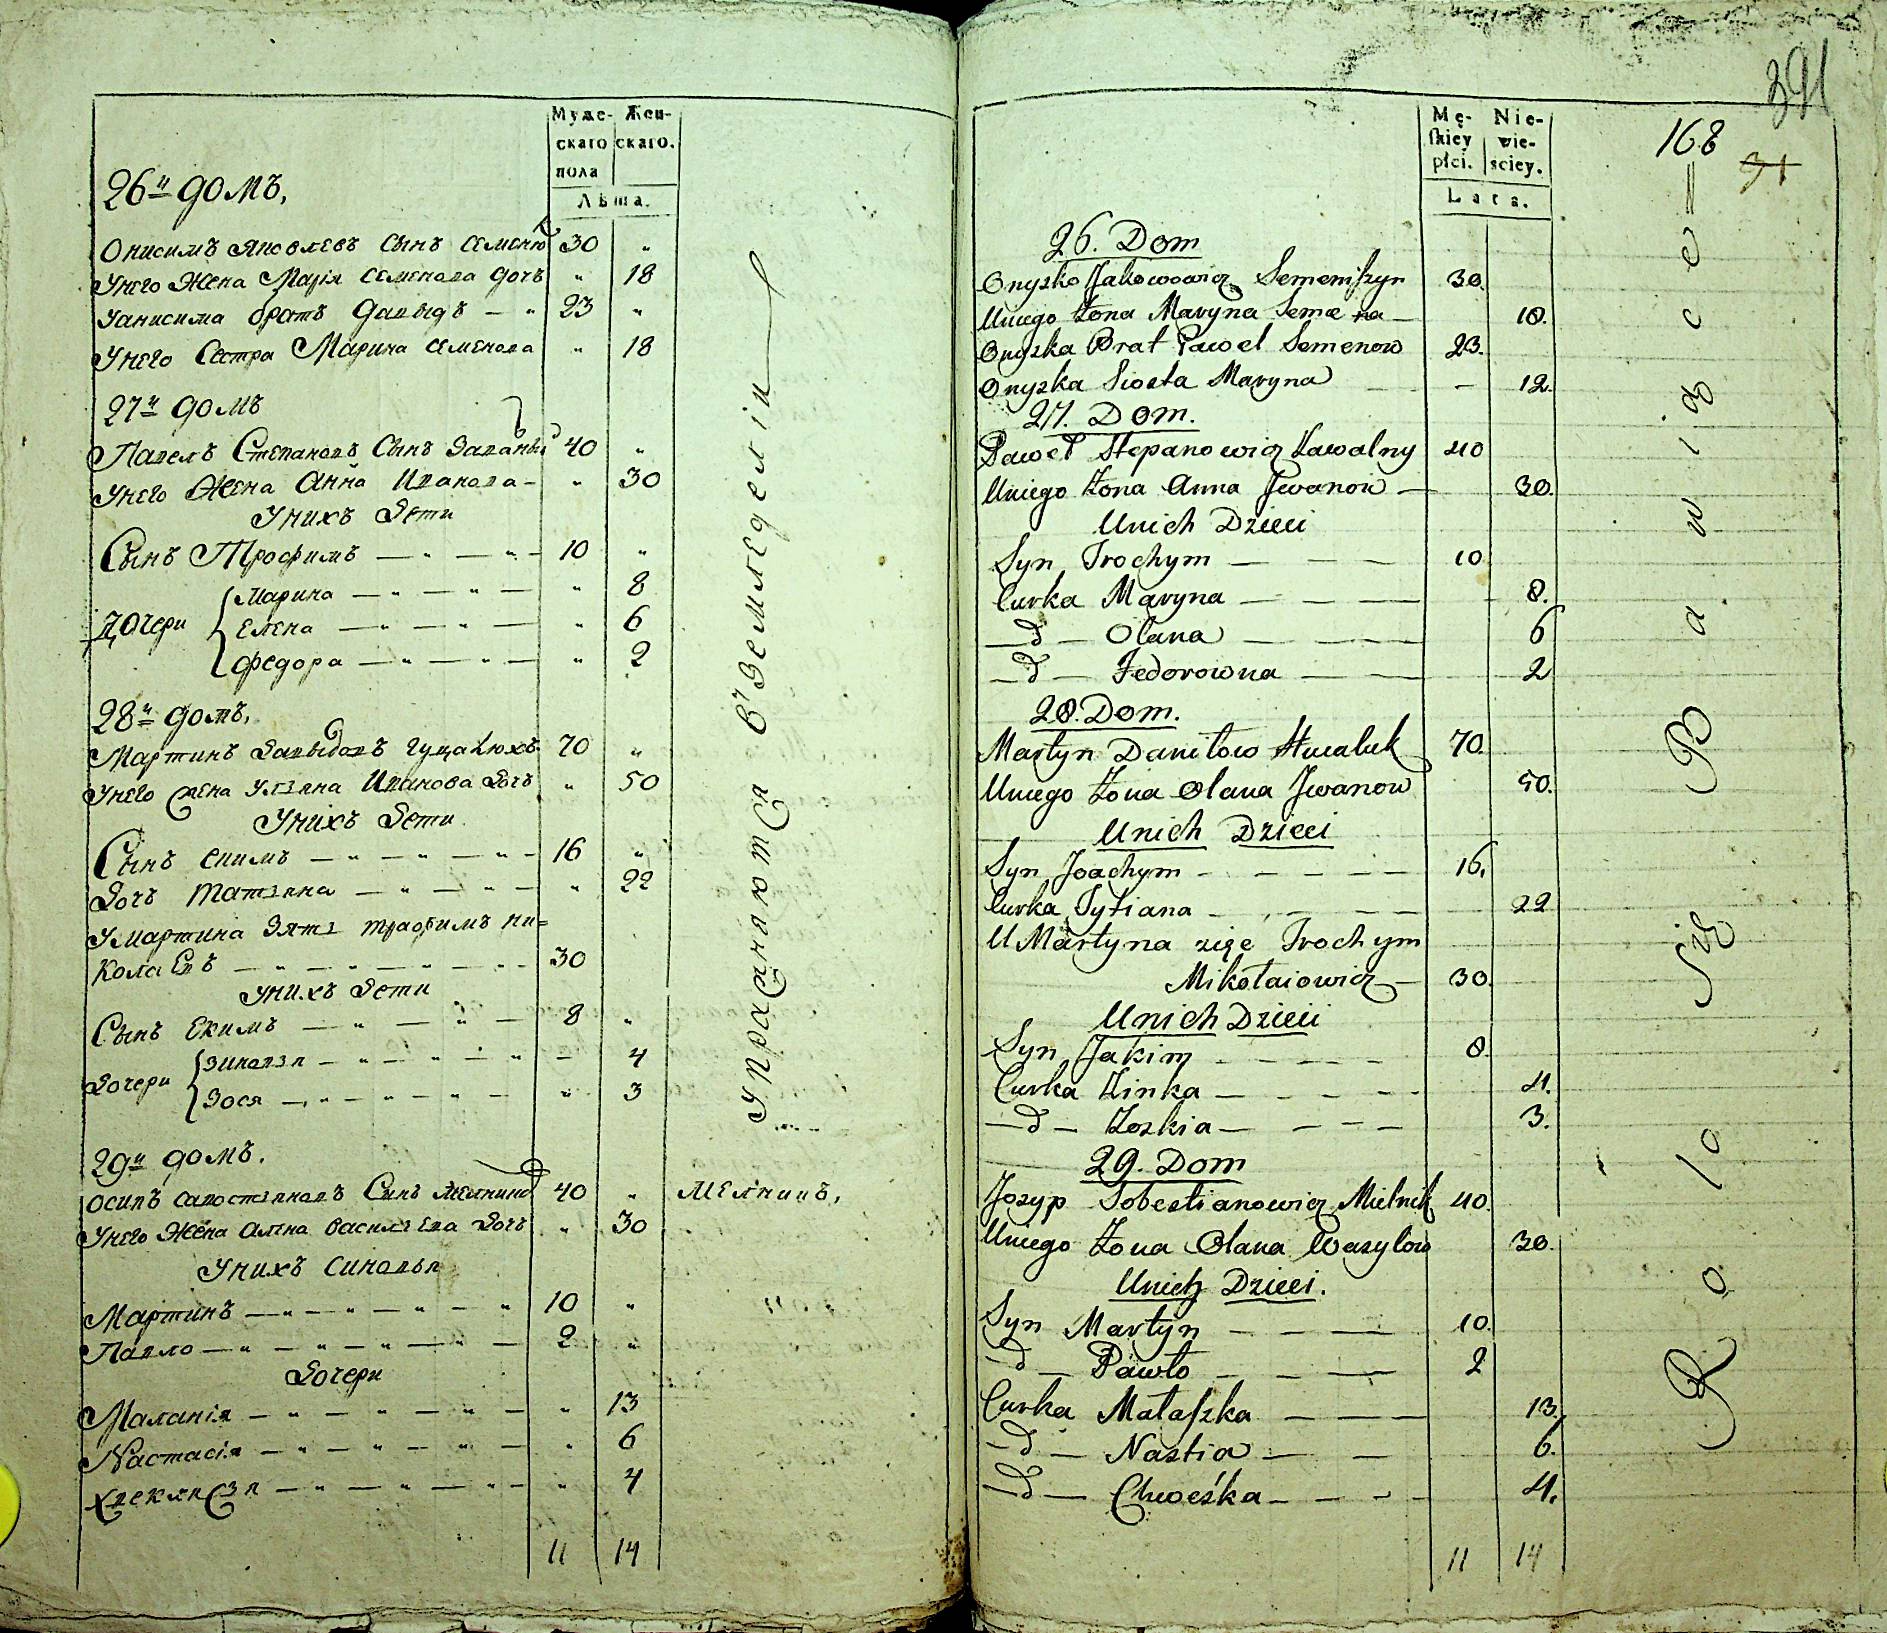 Муже- Жен-
скаго скаго.
пола
Лѣта.
26й домъ,
Онисимъ Яковлевъ Сынъ Семеню 30 "
Унего Жена Марія Семенова дочь " 18
Уанисима братъ давыдъ — " 23 "
Унего Сестра Марина Семенова " 18
27й домъ
Павелъ Степановъ Сынъ 40 "
Унего Жена Анна Иванова - " 30
Унихъ Дети
Сынъ Трофимъ — " — " - 10 "
Марина — " — " — " 8
Дочери Елена — " — " — " 6
Федора — " — " — " 2
28й домъ,
Мартинъ 70 "
Унего жена Уляна Иванова Дочь " 50
Унихъ Дети
Сынъ Екимъ — " — " — " - 16 "
Дочь Татьяна — " — " — " 22
Умартина Зять Трафимъ Ни=
колаевъ — " — " — " - 30
Унихъ Дети
Сынъ Екимъ — " — " — 8 "
Зиновья — " — " — " — 4
Дочери Зося — " — " — " — " 3
29й домъ.
Осипъ Савостьяновъ Сынъ 40 " Мелникъ,
Унего Жена Алена Васильева Дочь " 30
Унихъ Синовья
Мартинъ — " — " — " — " 10 "
Павло — " — " — " — " — 2 "
Дочери
Маланія — " — " — " — " 13
Настасія — " — " — " — " 6
— " — " — " — " 4
11 14
Упражняются въ Земледеліи
391
Mę- Nie-
skiey wie-
płci. sciey.
Lata.
168
31
26. Dom
Onyszko Jakowowicz Semeniszyn 30.
Uniego Żona Maryna Seme na — 18.
Onyszka Brat Paweł Semenow 23.
Onyszka Siosta Maryna — - 12.
27. Dom.
Paweł Stepanowicz Zawalny 40
Uniego Żona Anna Jwanow — 30.
Unich Dzieci
Syn Trochym — — — 10
Curka Maryna — — — — 8.
— d — Olana — — — 6
— d — Fedorowna — — 2
28. Dom.
Martyn Daniłow 70.
Uniego Żona Olana Jwanow 50.
Unich Dzieci
Syn Joachym - — — — — 16.
Curka Tytiana - - — — 22
U Martyna zięc Trochym
Mikołaiowicz — 30.
Unich Dzieci
Syn Jakim - — — — — 8.
Curka Zinka — — - - - 4.
— d — Zoskia — - — — 3.
29. Dom
Jozyp Sobestianowicz Mielnik 40.
Uniego Żona Olana Wasylow 30.
Unich Dzieci.
Syn Martyn — — — 10.
— d — Pawło - — — 2
Curka Małaszka — — — 13.
— d — Nastia — — 6.
— d — Chweśka — — - - 4.
11 14
Rolo Się Bawiące =